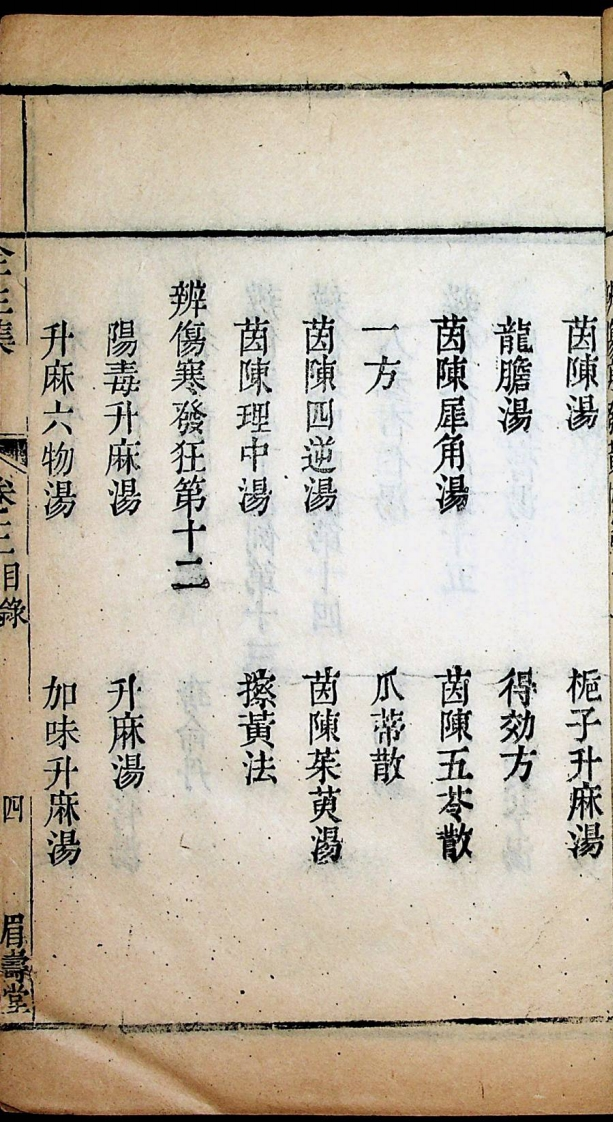 茵陳湯 梔子升麻湯
龍膽湯 得効方
茵陳犀角湯 茵陳五苓散
一方 瓜蒂散
茵陳四逆湯 茵陳茱萸湯
茵陳理中湯 搽黃法
辨傷寒發狂第十二
陽毒升麻湯 升麻湯
升麻六物湯 加味升麻湯
全生集 卷之三目錄 四 眉壽堂